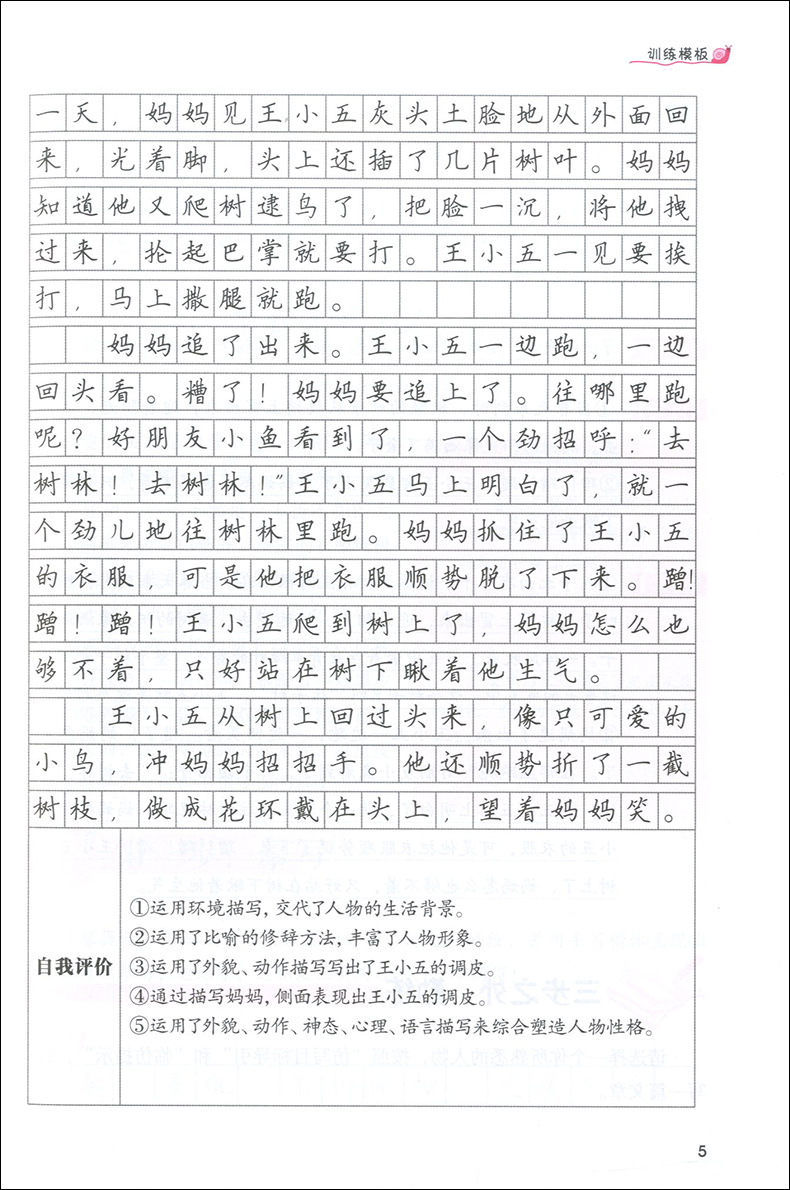 训练模板
一天，妈妈见王小五灰头土脸地从外面回
来，光着脚，头上还插了几片树叶。妈妈
知道他又爬树逮鸟了，把脸一沉，将他拽
过来，抡起巴掌就要打。王小五一见要挨
打，马上撒腿就跑。
妈妈追了出来。王小五一边跑，一边
回头看。糟了！妈妈要追上了。往哪里跑
呢？好朋友小鱼看到了，一个劲招呼：“去
树林！去树林！”王小五马上明白了，就一
个劲儿地往树林里跑。妈妈抓住了王小五
的衣服，可是他把衣服顺势脱了下来。蹭！
蹭！蹭！王小五爬到树上了，妈妈怎么也
够不着，只好站在树下瞅着他生气。
王小五从树上回过头来，像只可爱的
小鸟 冲妈妈招招手。他还顺势折了一截
树枝，做成花环戴在头上，望着妈妈笑。
自我评价
①运用环境描写，交代了人物的生活背景。
②运用了比喻的修辞方法，丰富了人物形象。
③运用了外貌、动作描写写出了王小五的调皮。
④通过描写妈妈，侧面表现出王小五的调皮。
⑤运用了外貌、动作、神态、心理、语言描写来综合塑造人物性格。
5